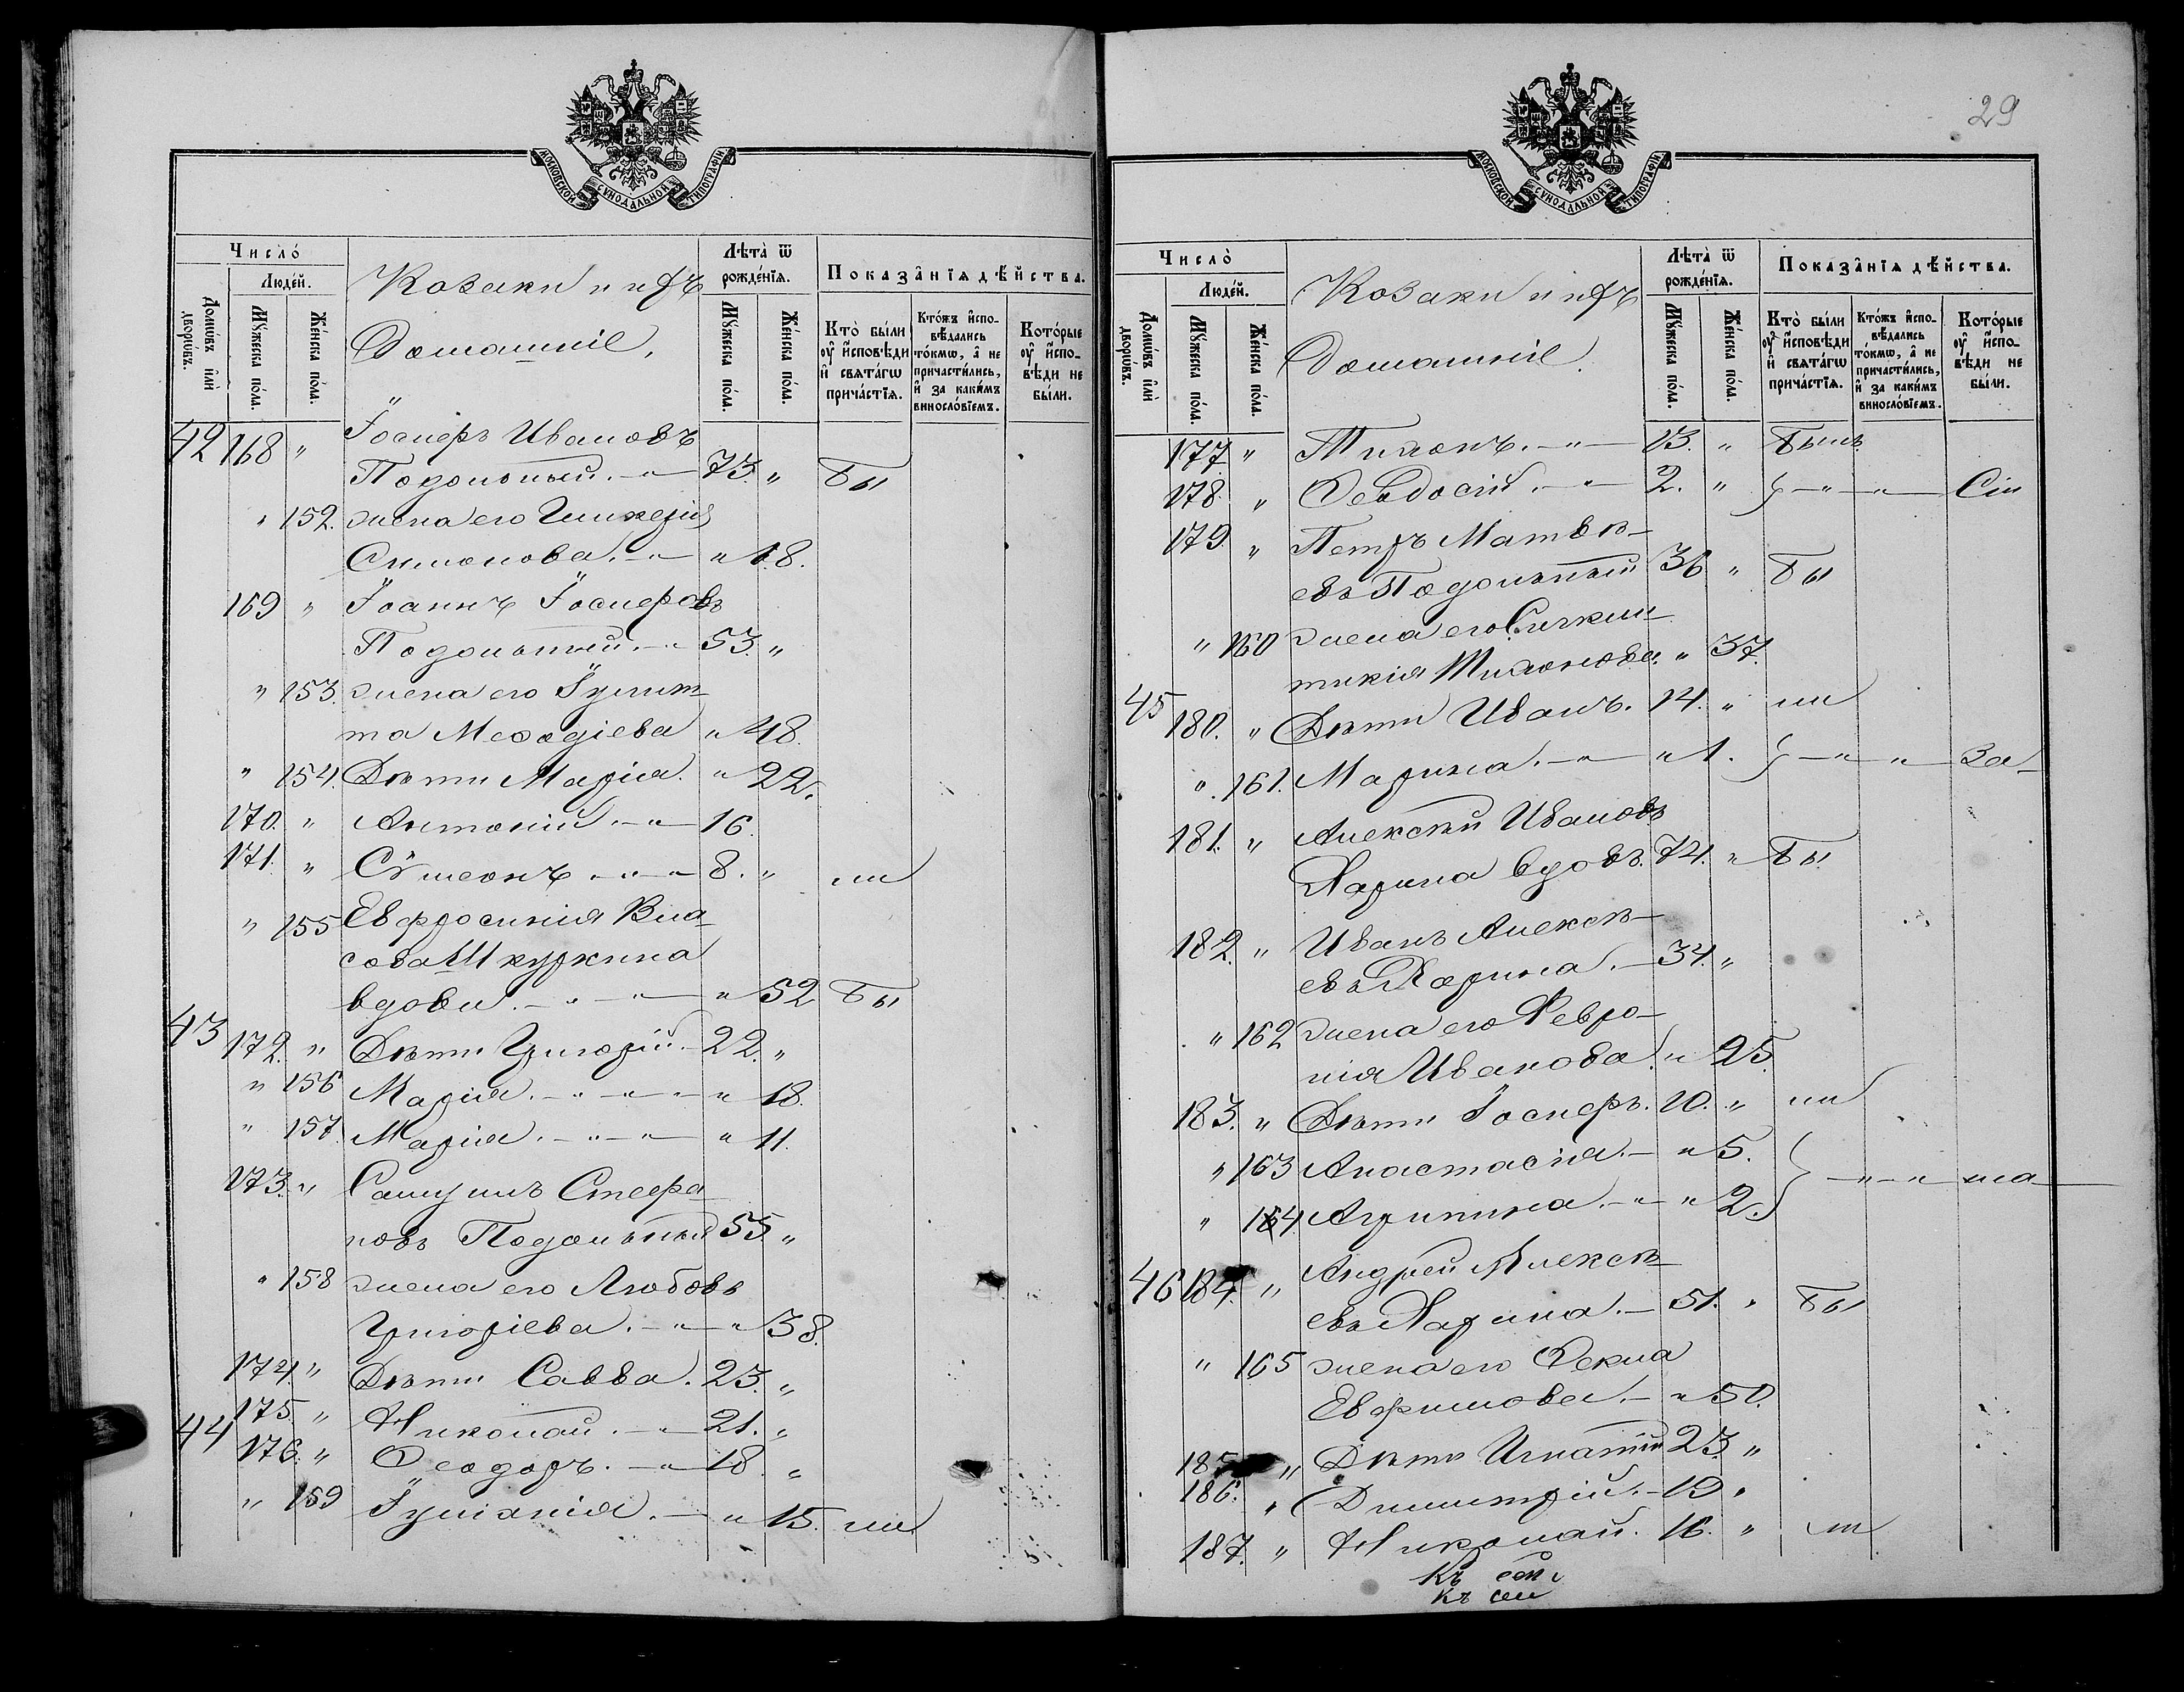 МОСКОВСКОЙ СѴНОДАЛЬНОЙ ТИПОГРАФІИ
Число̀
Люде́й.
Домѡ́въ и҆лѝ дворѡ́въ.
Мꙋ́жеска по́ла.
Же́нска по́ла.
Козаки и ихъ
Домашніе.
Лѣ́та ѿ рожде́нїя.
Мꙋ́жеска по́ла.
Же́нска по́ла.
Показа́нїя дѣ́йства.
Кто̀ бы́ли оу҆ и҆сповѣ́ди и҆ свѧта́гѡ прича́стїѧ.
Кто́жъ и҆спо-вѣ́дались то́кмѡ, а҆ не причасти́лись, и҆ за каки́мъ винослові́емъ.
Кото́рые оу҆ и҆спо-вѣ́ди не бы́ли.
42 168 " Іосифъ Ивановъ
Подольный. — " — 73. " Бы
" 152. жена его Гликерія
Симонова. — " — " 18.
169 " Іоаннъ Іосифовъ
Подольный. — " 53. "
" 153. жена его Іулит-
та Меѳодіева " 48.
" 154. Дѣти Марія. " 22.
170. " Антоній. — " — 16.
171. " Сѵмеонъ — " — " 8. " ли
" 155 Евфросинія Вла-
сова Шкуркина
вдова. — " — " — " 52 Бы
43 172. " Дѣти Григорій. — 22. "
" 156 Марія. — " — " — " 18.
" 157. Марія. — " — " — " 11.
173. " Самуилъ Стефа-
новъ Подольный 55. "
" 158 жена его Любовь
Григоріева. — " — " 38.
174 " Дѣти Савва. 23. "
44 175. " Николай. — " — 21. "
176. " Ѳеодоръ. — " — 18. "
" 159 Іуліанія. — " 15. ли
29
МОСКОВСКОЙ СѴНОДАЛЬНОЙ ТИПОГРАФІИ
Число̀
Люде́й.
Домѡ́въ и҆лѝ дворѡ́въ.
Мꙋ́жеска по́ла.
Же́нска по́ла.
Козаки и ихъ
Домашніе.
Лѣ́та ѿ рожде́нїя.
Мꙋ́жеска по́ла.
Же́нска по́ла.
Показа́нїя дѣ́йства.
Кто̀ бы́ли оу҆ и҆сповѣ́ди и҆ свѧта́гѡ прича́стїѧ.
Кто́жъ и҆спо-вѣ́дались то́кмѡ, а҆ не причасти́лись, и҆ за каки́мъ винослові́емъ.
Кото́рые оу҆ и҆спо-вѣ́ди не бы́ли.
177 " Тихонъ. — " — 13. "
178. " Ѳеодосій. — " — 2. "
179. " Петръ Матвѣ-
евъ Подольный 36 " Бы
" 160 жена его
Тихонова. " 37.
45 180. " Дѣти Иванъ. 14. " ли
" 161. Марина. — " — " 1. } — " — " — За-
181. " Алексѣй Ивановъ
Ларина вдовъ. 74. " Бы
182. " Иванъ Алексѣ-
евъ Ларина. — 34. "
" 162 жена его Февро-
нія Иванова. " 25.
183. " Дѣти Іосифъ. 10. " ли
" 163 Анастасія. — " 5.
" 164 Агрипина. — " — " 2. } — " — " — ма-
46 184. " Андрей Алексѣ-
евъ Ларина. — 51. " Бы
" 165 жена его Ѳекла
Евфимова. — " 50.
185 " Дѣти Игнатій 23. "
186. " Димитрій. — 19. "
187. " Николай. 16. " ли